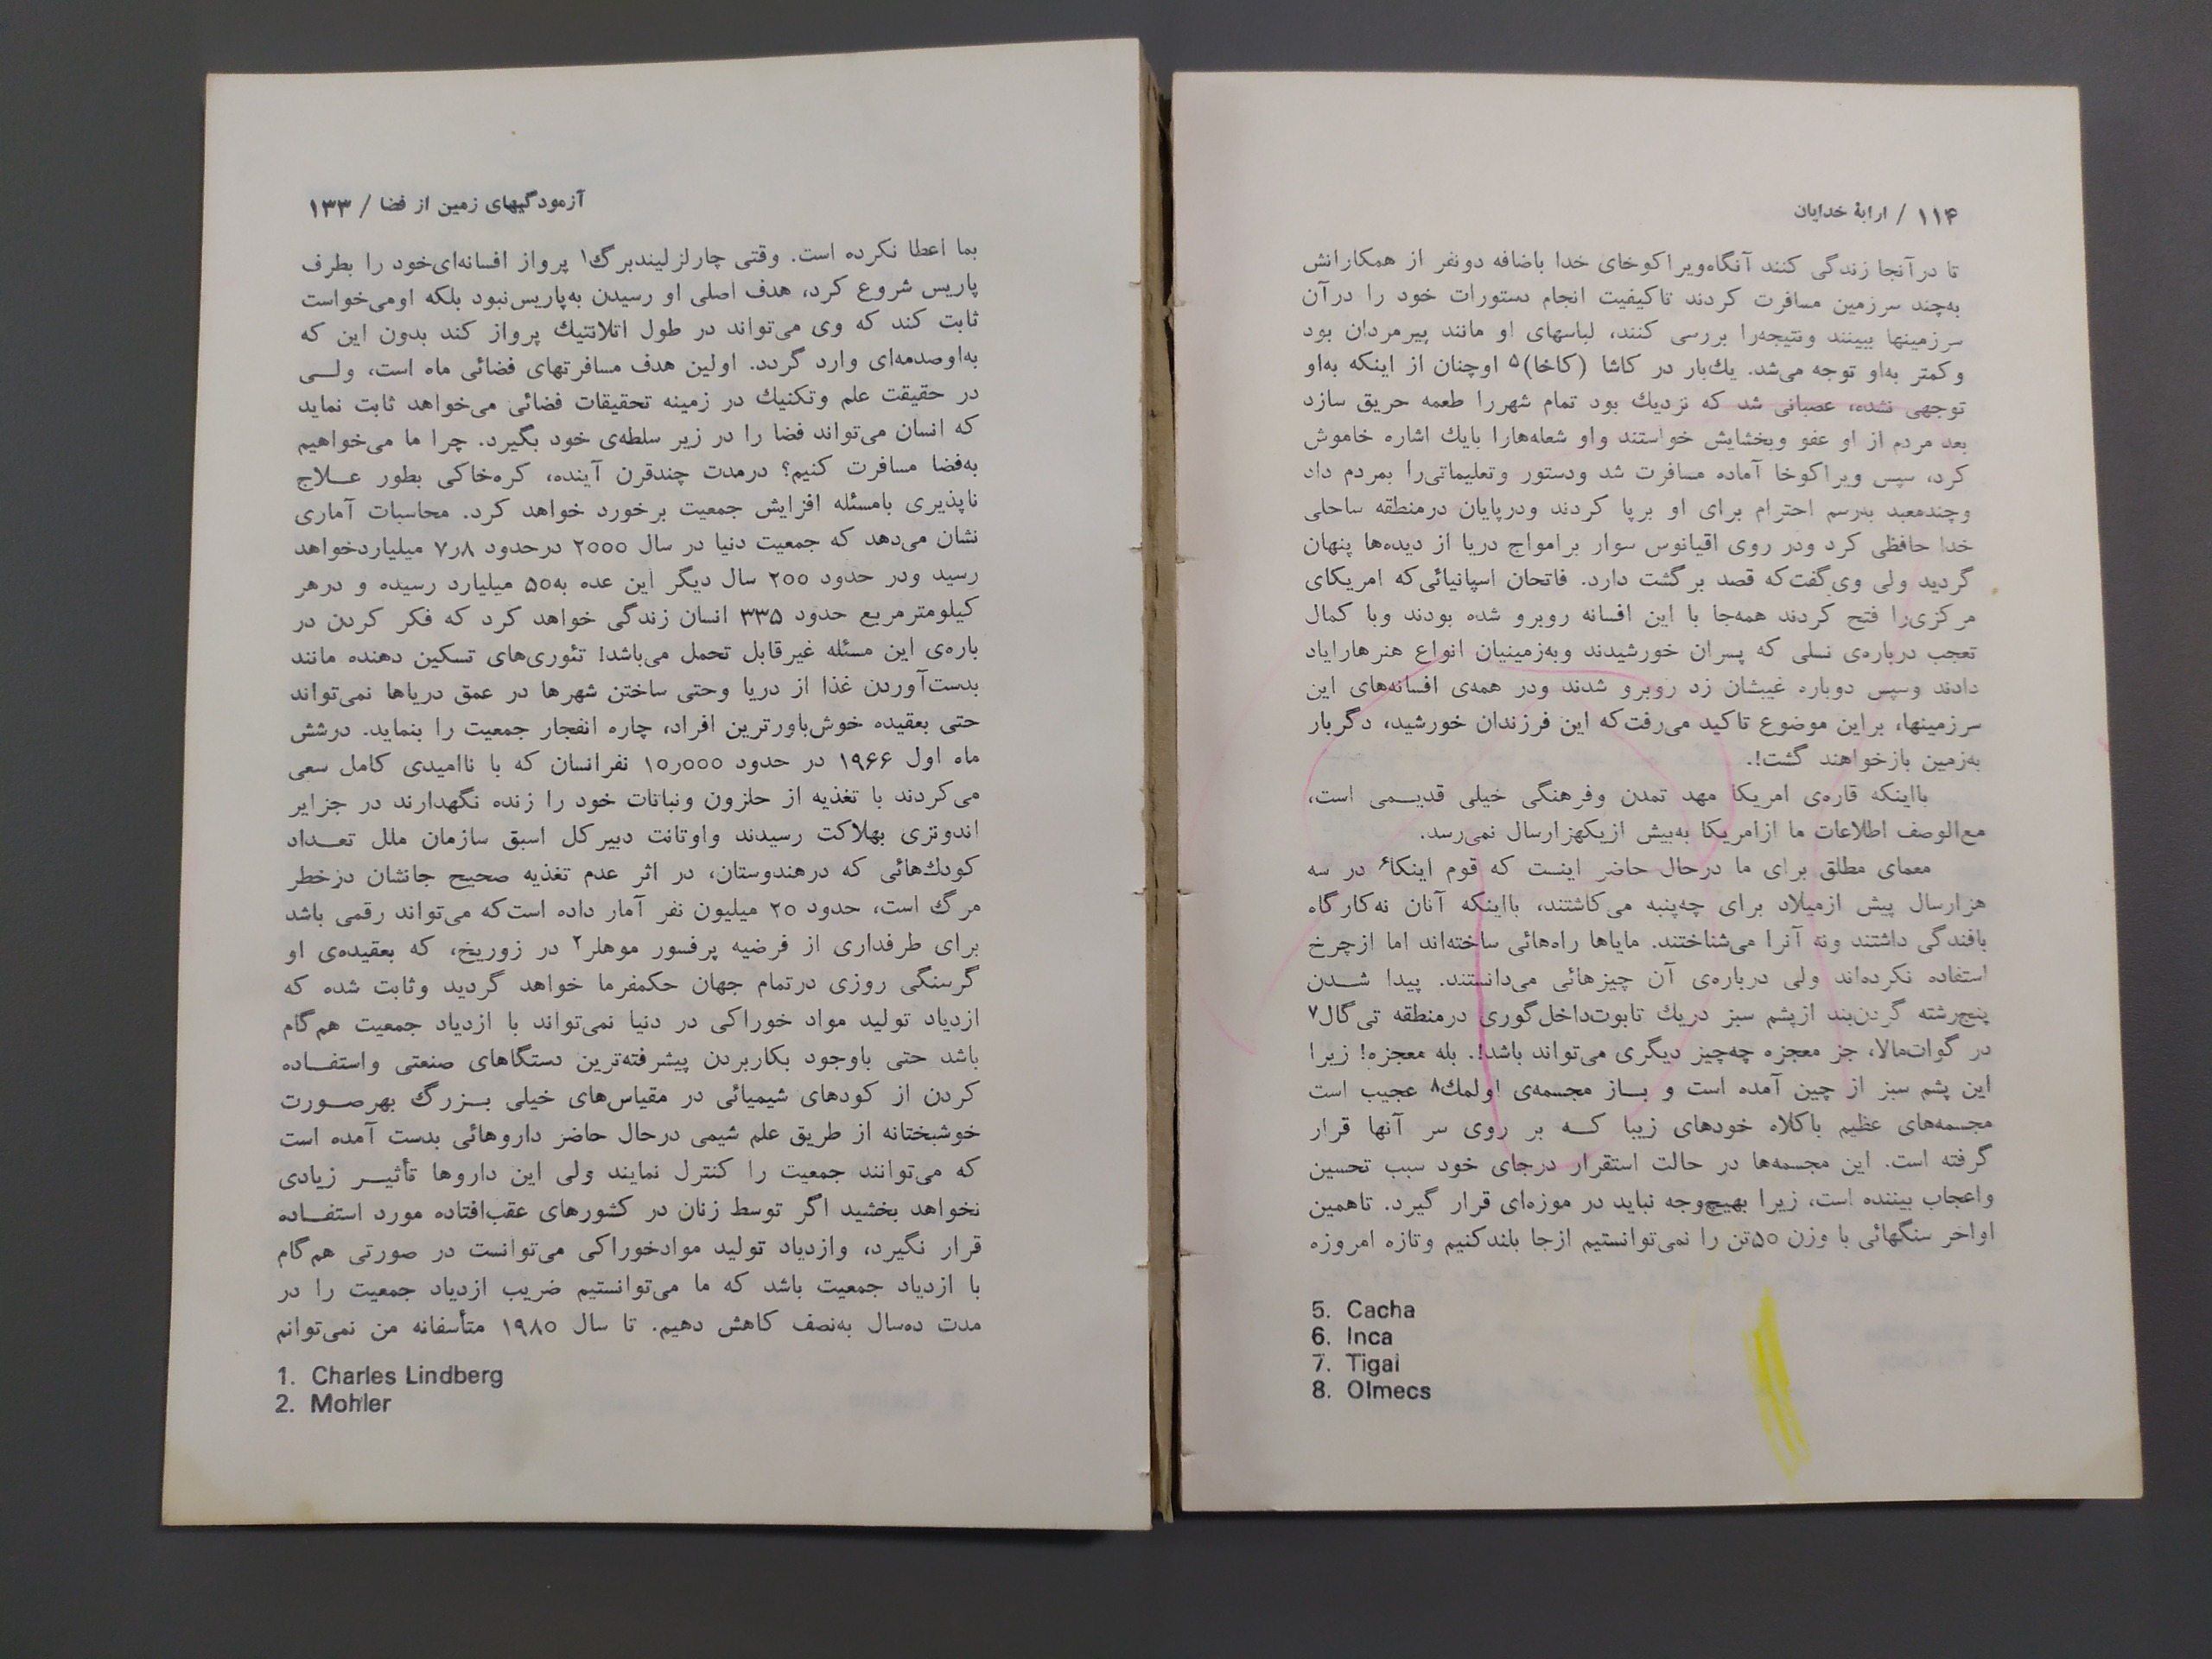 ۱۱۴ / ارابهٔ خدایان
تا درآنجا زندگی کنند آنگاه‌ویراکوخای خدا باضافه دونفر از همکارانش
به‌چند سرزمین مسافرت کردند تاکیفیت انجام دستورات خود را درآن
سرزمینها ببینند ونتیجه‌را بررسی کنند، لباسهای او مانند پیرمردان بود
وکمتر به‌او توجه می‌شد. یك‌بار در کاشا (کاخا)۵ اوچنان از اینکه به‌او
توجهی نشده، عصبانی شد که نزدیك بود تمام شهررا طعمه حریق سازد
بعد مردم از او عفو وبخشایش خواستند واو شعله‌هارا بایك اشاره خاموش
کرد، سپس ویراکوخا آماده مسافرت شد ودستور وتعلیماتی‌را بمردم داد
وچندمعبد به‌رسم احترام برای او برپا کردند ودرپایان درمنطقه ساحلی
خدا حافظی کرد ودر روی اقیانوس سوار برامواج دریا از دیده‌ها پنهان
گردید ولی وی‌گفت‌که قصد برگشت دارد. فاتحان اسپانیائی‌که امریکای
مرکزی‌را فتح کردند همه‌جا با این افسانه روبرو شده بودند وبا کمال
تعجب درباره‌ی نسلی که پسران خورشیدند وبه‌زمینیان انواع هنرهارایاد
دادند وسپس دوباره غیبشان زد روبرو شدند ودر همه‌ی افسانه‌های این
سرزمینها، براین موضوع تاکید می‌رفت‌که این فرزندان خورشید، دگربار
به‌زمین بازخواهند گشت!.
بااینکه قاره‌ی امریکا مهد تمدن وفرهنگی خیلی قدیـمی است،
مع‌الوصف اطلاعات ما ازامریکا به‌بیش ازیکهزارسال نمی‌رسد.
معمای مطلق برای ما درحال حاضر اینست که قوم اینکا۶ در سه
هزارسال پیش ازمیلاد برای چه‌پنبه می‌کاشتند، بااینکه آنان نه‌کارگاه
بافندگی داشتند ونه آنرا می‌شناختند. مایاها راه‌هائی ساخته‌اند اما ازچرخ
استفاده نکرده‌اند ولی درباره‌ی آن چیزهائی می‌دانستند. پیدا شـدن
پنج‌رشته گردن‌بند ازپشم سبز دریك تابوت‌داخل‌گوری درمنطقه تی‌گال۷
در گوات‌مالا، جز معجزه چه‌چیز دیگری می‌تواند باشد!. بله معجزه! زیرا
این پشم سبز از چین آمده است و بـاز مجسمه‌ی اولمك۸ عجیب است
مجسمه‌های عظیم باکلاه خودهای زیبا کـه بر روی سر آنها قرار
گرفته است. این مجسمه‌ها در حالت استقرار درجای خود سبب تحسین
واعجاب بیننده است، زیرا بهیچ‌وجه نباید در موزه‌ای قرار گیرد. تاهمین
اواخر سنگهائی با وزن ۵۰تن را نمی‌توانستیم ازجا بلندکنیم وتازه امروزه
5. Cacha
6. Inca
7. Tigal
8. Olmecs
آزمودگیهای زمین از فضا / ۱۳۳
بما اعطا نکرده است. وقتی چارلزلیندبرگ۱ پرواز افسانه‌ای‌خود را بطرف
پاریس شروع کرد، هدف اصلی او رسیدن به‌پاریس‌نبود بلکه اومی‌خواست
ثابت کند که وی می‌تواند در طول اتلانتیك پرواز کند بدون این که
به‌اوصدمه‌ای وارد گردد. اولین هدف مسافرتهای فضائی ماه است، ولـی
در حقیقت علم وتکنیك در زمینه تحقیقات فضائی می‌خواهد ثابت نماید
که انسان می‌تواند فضا را در زیر سلطه‌ی خود بگیرد. چرا ما می‌خواهیم
به‌فضا مسافرت کنیم؟ درمدت چندقرن آینده، کره‌خاکی بطور عـلاج
ناپذیری بامسئله افزایش جمعیت برخورد خواهد کرد. محاسبات آماری
نشان می‌دهد که جمعیت دنیا در سال ۲۰۰۰ درحدود ۷٫۸ میلیاردخواهد
رسید ودر حدود ۲۰۰ سال دیگر این عده به‌۵۰ میلیارد رسیده و درهر
کیلومترمربع حدود ۳۳۵ انسان زندگی خواهد کرد که فکر کردن در
باره‌ی این مسئله غیرقابل تحمل می‌باشد! تئوری‌های تسکین دهنده مانند
بدست‌آوردن غذا از دریا وحتی ساختن شهرها در عمق دریاها نمی‌تواند
حتی بعقیده خوش‌باورترین افراد، چاره انفجار جمعیت را بنماید. درشش
ماه اول ۱۹۶۶ در حدود ۱۰٫۰۰۰ نفرانسان که با ناامیدی کامل سعی
می‌کردند با تغذیه از حلزون ونباتات خود را زنده نگهدارند در جزایر
اندونزی بهلاکت رسیدند واوتانت دبیرکل اسبق سازمان ملل تعـداد
کودك‌هائی که درهندوستان، در اثر عدم تغذیه صحیح جانشان درخطر
مرگ است، حدود ۲۰ میلیون نفر آمار داده است‌که می‌تواند رقمی باشد
برای طرفداری از فرضیه پرفسور موهلر۲ در زوریخ، که بعقیده‌ی او
گرسنگی روزی درتمام جهان حکمفرما خواهد گردید وثابت شده که
ازدیاد تولید مواد خوراکی در دنیا نمی‌تواند با ازدیاد جمعیت هم‌گام
باشد حتی باوجود بکاربردن پیشرفته‌ترین دستگاهای صنعتی واستفـاده
کردن از کودهای شیمیائی در مقیاس‌های خیلی بـزرگ بهرصـورت
خوشبختانه از طریق علم شیمی درحال حاضر داروهائی بدست آمده است
که می‌توانند جمعیت را کنترل نمایند ولی این داروها تأثیـر زیادی
نخواهد بخشید اگر توسط زنان در کشورهای عقب‌افتاده مورد استفـاده
قرار نگیرد، وازدیاد تولید موادخوراکی می‌توانست در صورتی هم‌گام
با ازدیاد جمعیت باشد که ما می‌توانستیم ضریب ازدیاد جمعیت را در
مدت ده‌سال به‌نصف کاهش دهیم. تا سال ۱۹۸۰ متأسفانه من نمی‌توانم
1. Charles Lindberg
2. Mohler